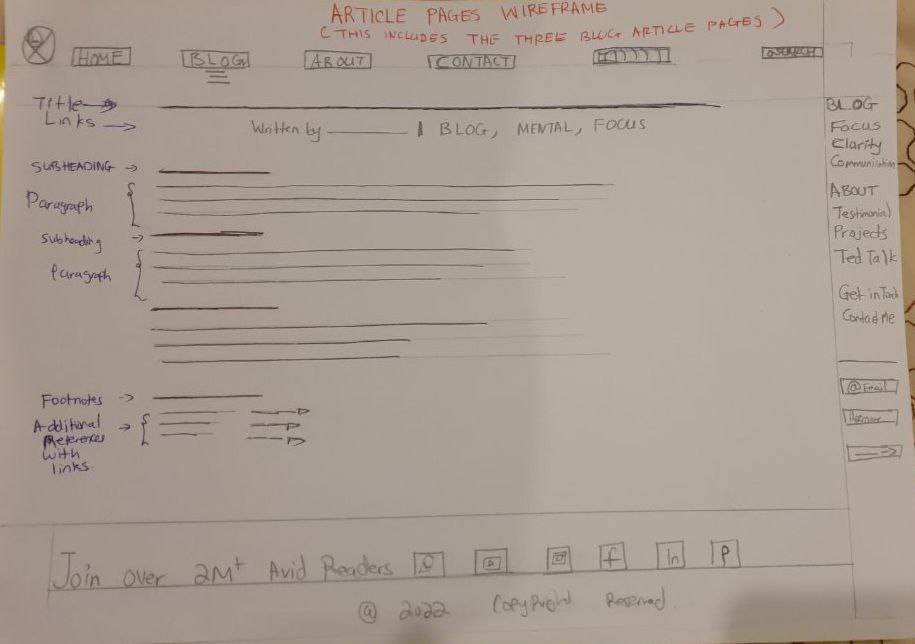 ARTICLE PAGES WIREFRAME
(THIS INCLUDES THE THREE BLOG ARTICLE PAGES)
HOME BLOG ABOUT CONTACT SEARCH
Title
Links
Written by BLOG, MENTAL, FOCUS
SUBHEADING
Paragraph
Subheading
Paragraph
Footnotes
Additional
References
with
links
BLOG
Focus
Clarity
Communication
ABOUT
Testimonial
Projects
Ted Talk
Get in Touch
Contact Me
@ Email
Join over 2M+ Avid Readers f In P
@ 2022 CopyRight Reserved.